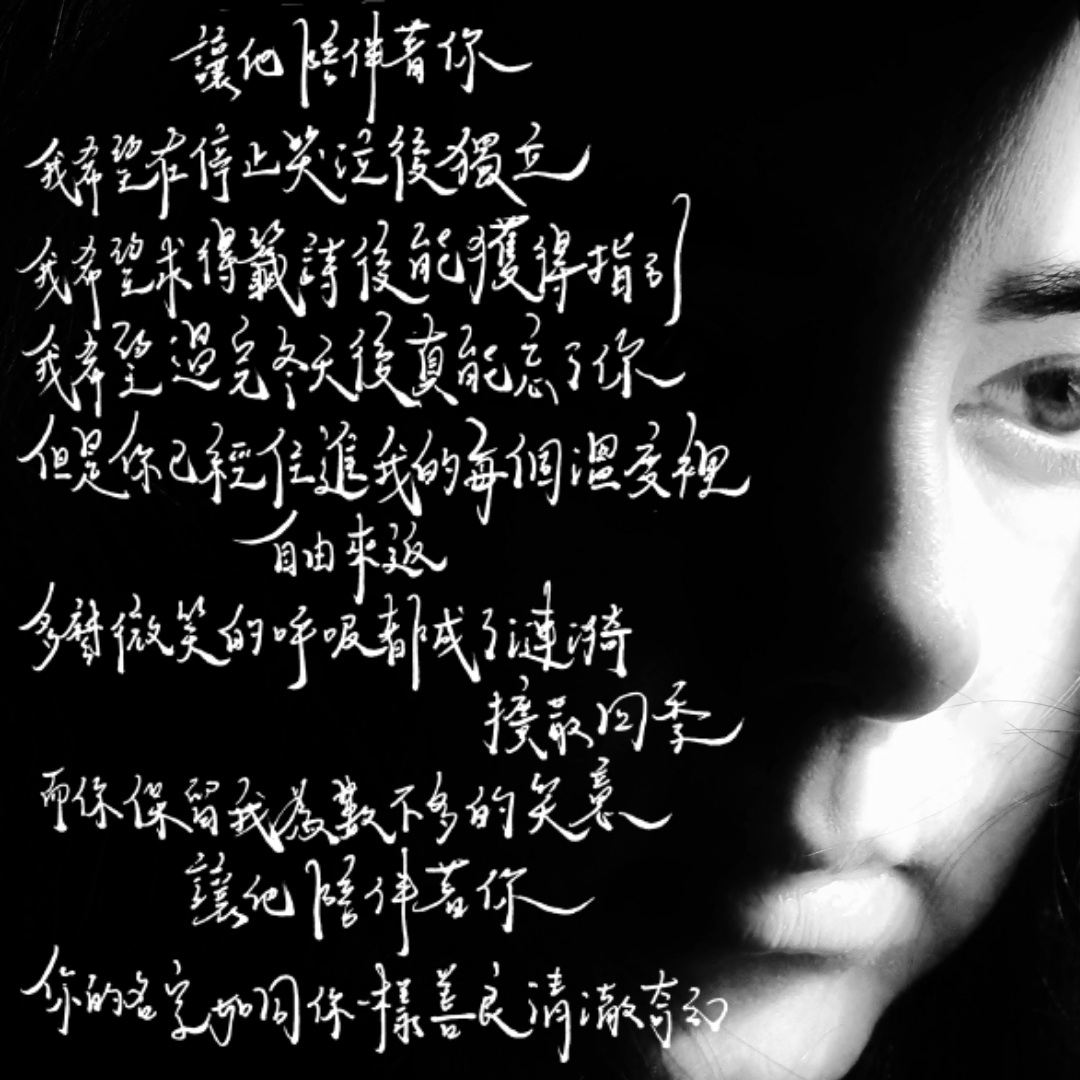 讓他陪伴著你
我希望在停止哭泣後獨立
我希望求得籤詩後能獲得指引
我希望過完冬天後真能忘了你
但是你已經住進我的每個溫度裡
自由來返
多餘微笑的呼吸都成了漣漪
擴散四季
而你保留我為數不多的笑意
讓他陪伴著你
你的名字如同你一樣善良清澈奇幻